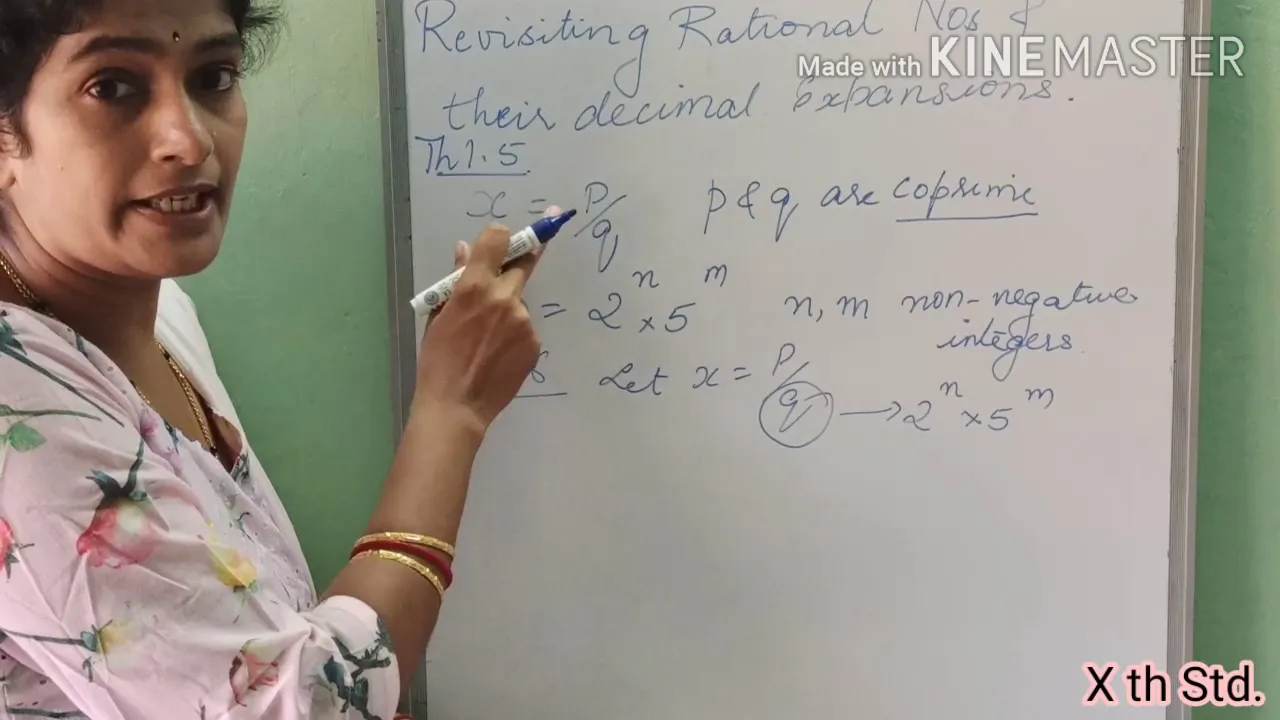 Revisiting Rational Nos &
Made with KINEMASTER
their decimal expansions.
Th 1.5
x = P/q p & q are coprime
= 2^n × 5^m n, m non-negative
integers.
Let x = P/q → 2^n × 5^m
X th Std.